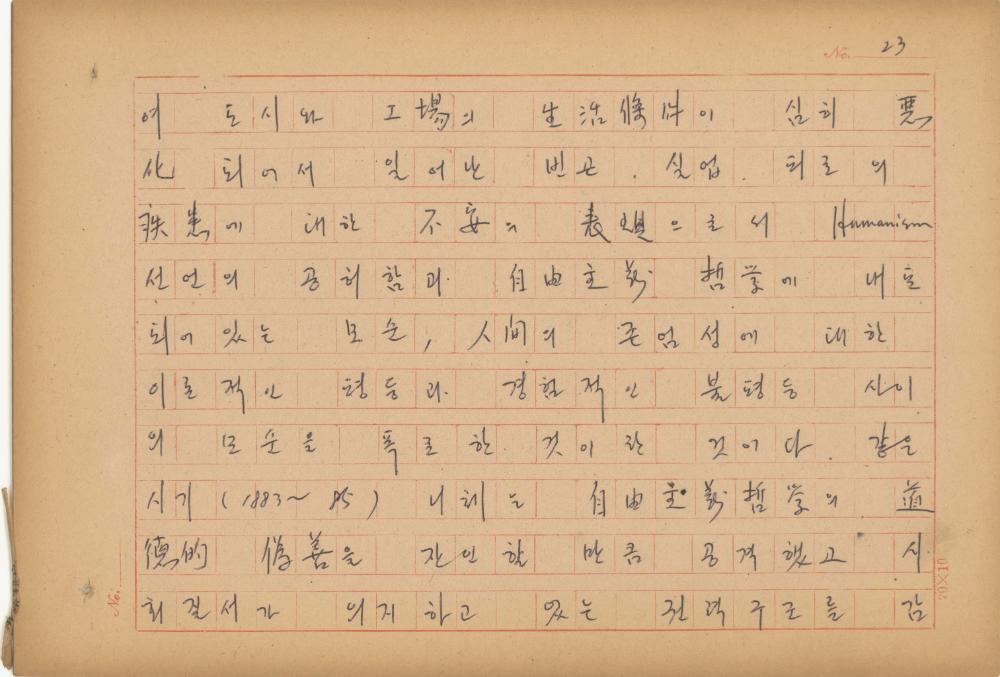 No. 23
여 도시와 工場의 生活條件이 심히 悪
化 되어서 일어난 빈곤, 실업, 피로의
疾患에 대한 不安의 表現으로서 Humanism
선언의 공허함과 自由主義 哲学에 내포
되어 있는 모순, 人間의 존엄성에 대한
이론적인 평등과 경험적인 불평등 사이
의 모순을 폭로한 것이란 것이다. 같은
시기 (1883~85) 니체는 自由主義哲学의 道
德的 偽善을 잔인할 만큼 공격했고 사
회질서가 의지하고 있는 권력구조를 감
No.
20×10